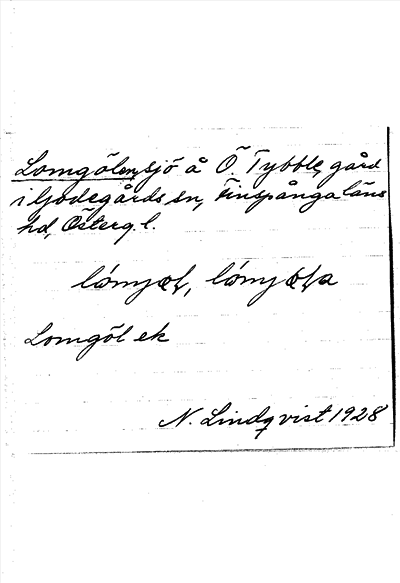 Lomgölen, sjö å Ö. Tybble, gård
i Godegårds sn, Finspånga läns
hd, Österg. l.
Lomgöl ek
N. Lindqvist 1928